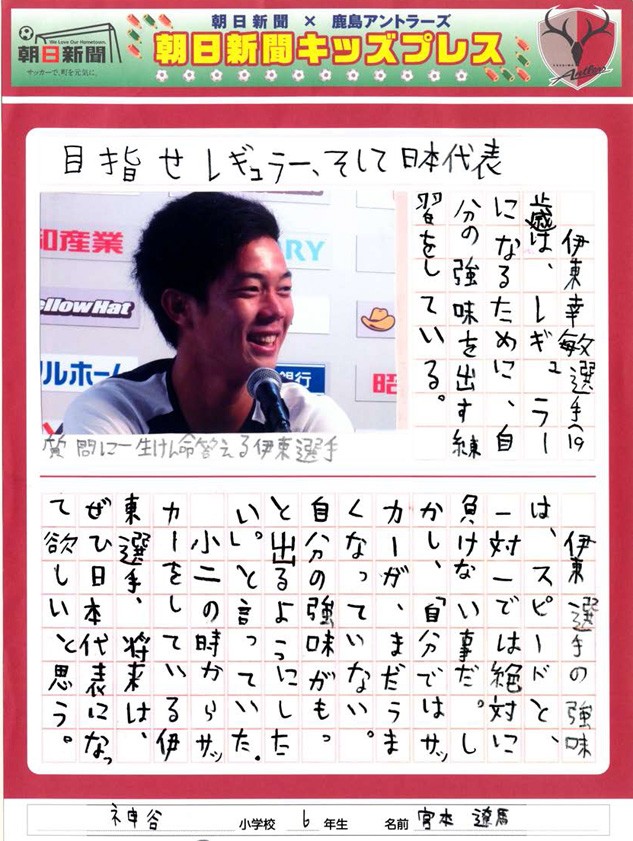 We Love Our Hometown.
朝日新聞
サッカーで、町を元気に。
朝日新聞 × 鹿島アントラーズ
朝日新聞キッズプレス
Antlers
目指せレギュラー、そして日本代表
伊東幸敏選手(19
歳)は、レギュラー
になるために、自
分の強味を出す練
習をしている。
和産業
RY
ellow Hat
リルホーム
銀行
昭
質問に一生けん命答える伊東選手
伊東選手の強味
は、スピードと、
一対一では絶対に
負けない事だ。し
かし、「自分ではサッ
カーが、まだうま
くなっていない。
自分の強味がもっ
と出るようにした
い。」と言っていた。
小二の時からサッ
カーをしている伊
東選手、将来は、
ぜひ日本代表になっ
て欲しいと思う。
神谷 小学校 6 年生 名前 宮本 遼馬